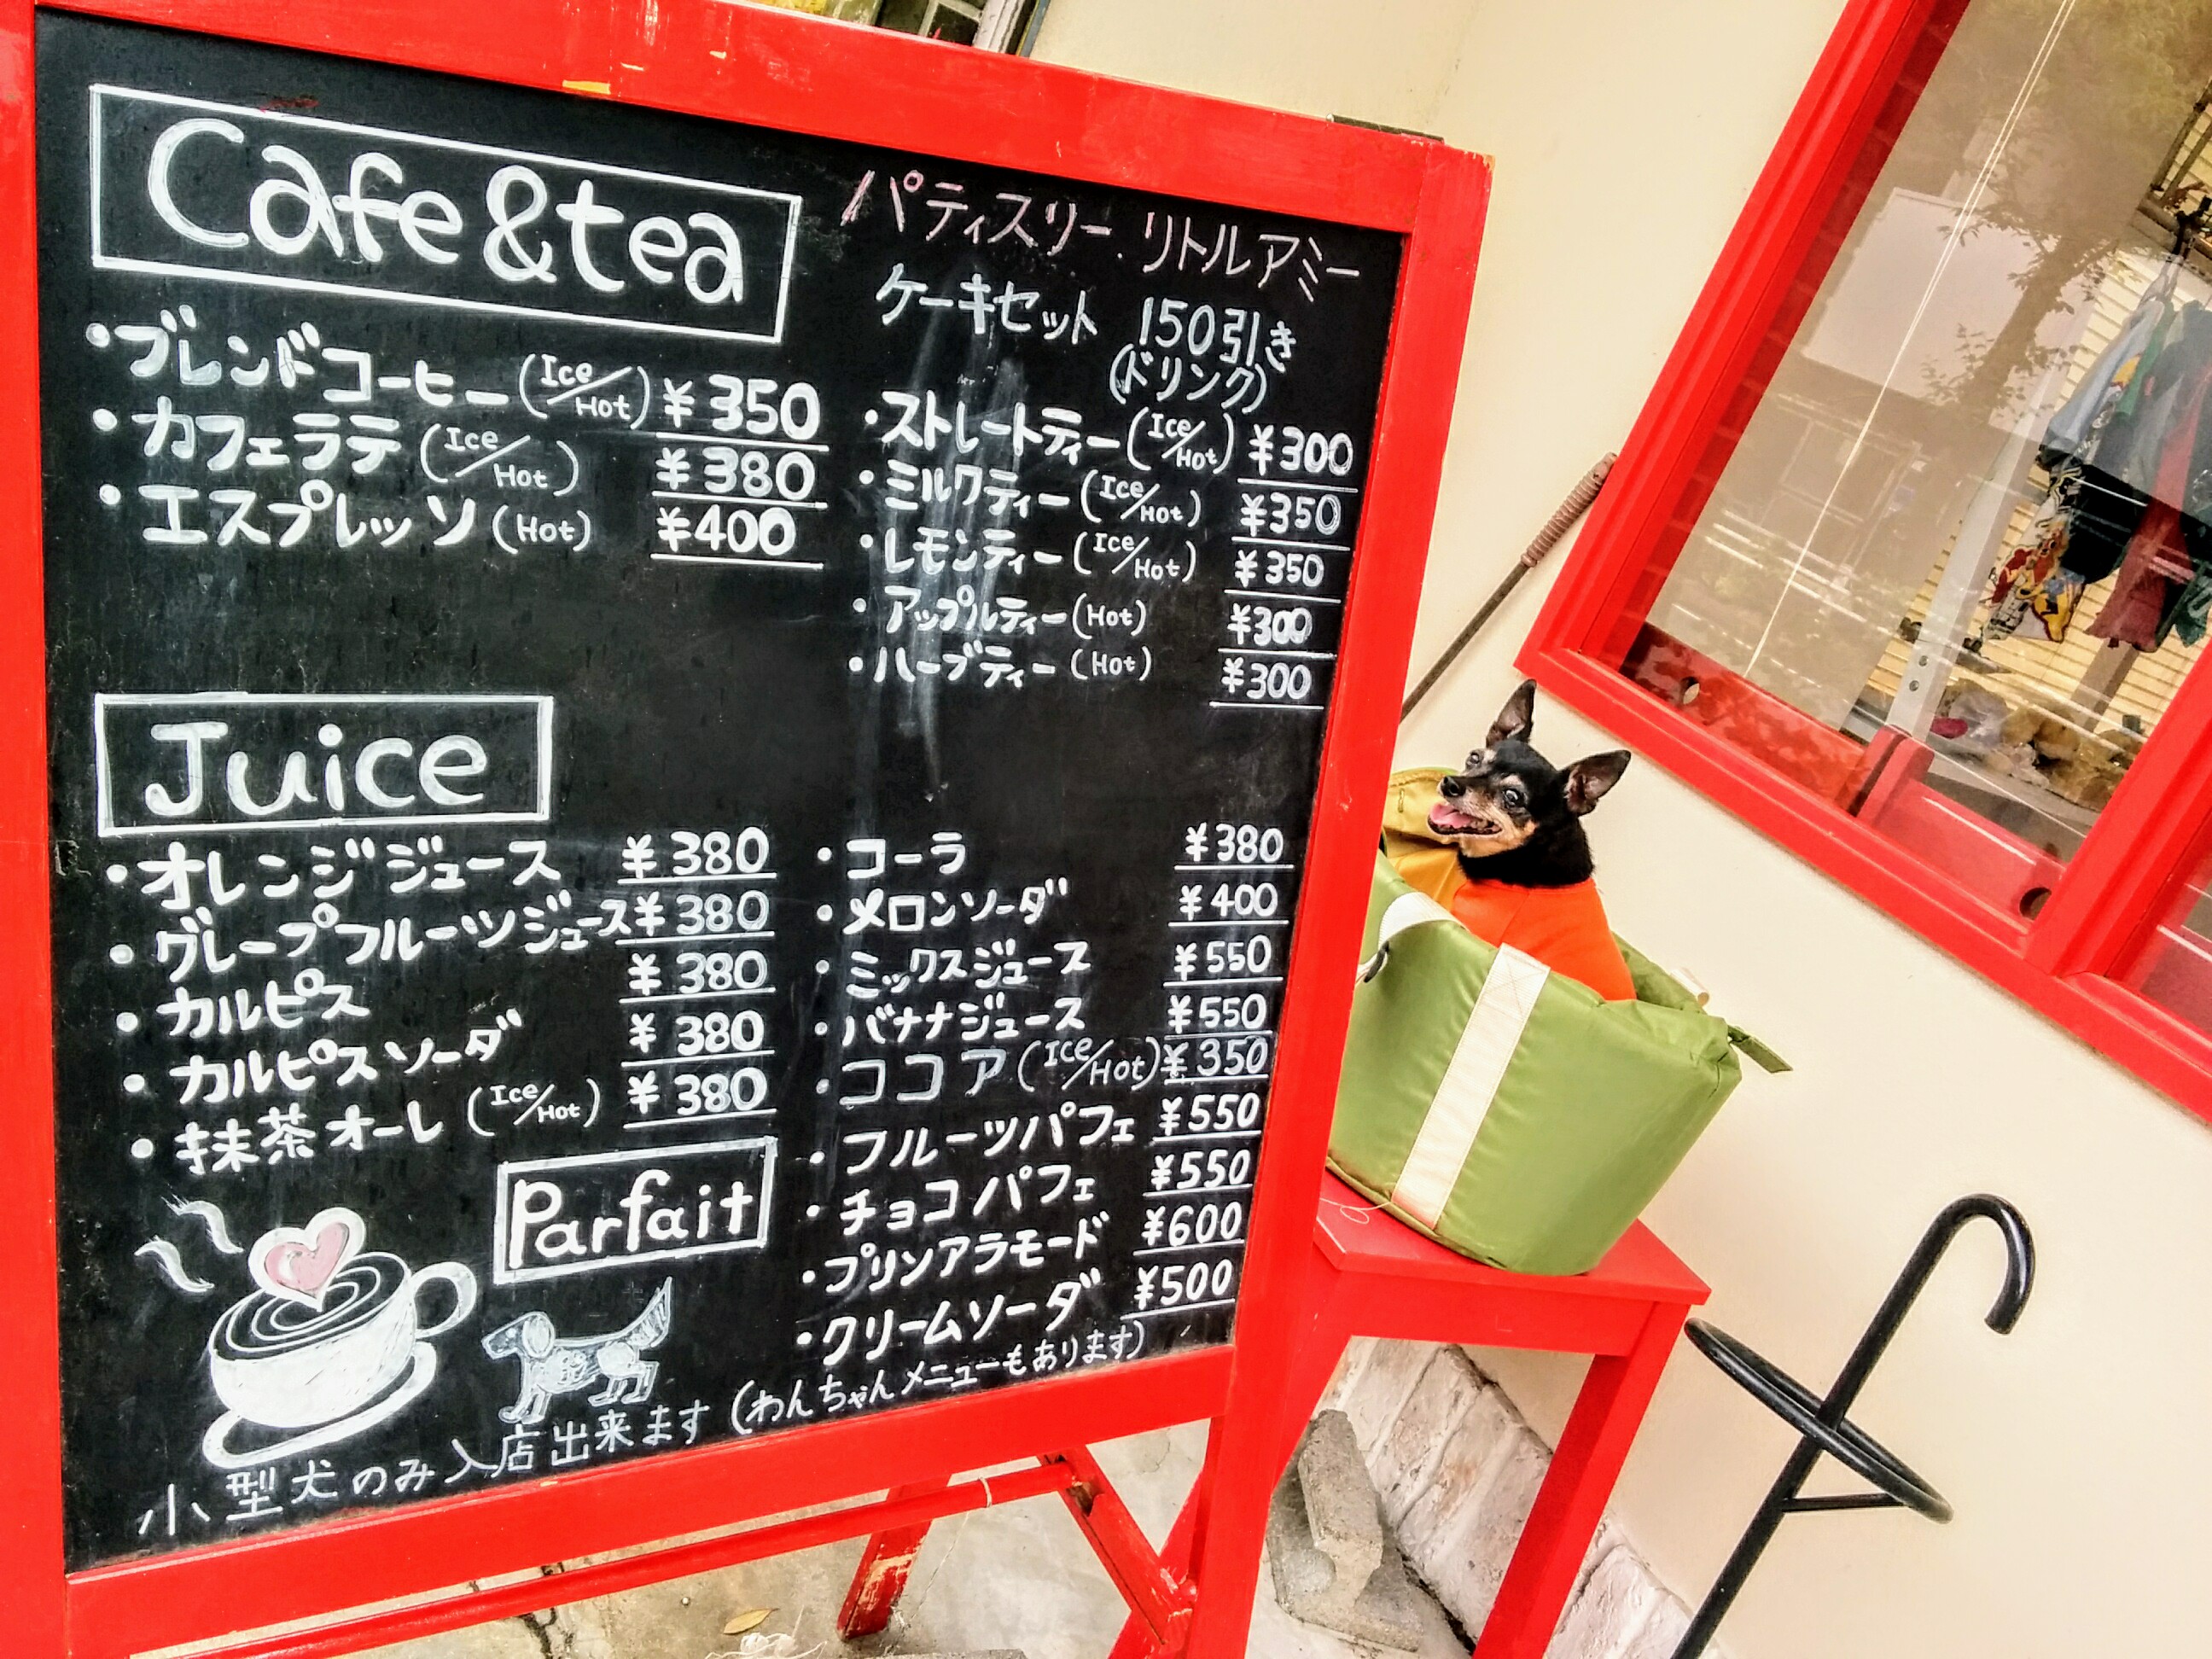 Cafe & tea
・ブレンドコーヒー (Ice/Hot) ¥350
・カフェラテ (Ice/Hot) ¥380
・エスプレッソ (Hot) ¥400
パティスリー リトルアミー
ケーキセット 150引き
(ドリンク)
・ストレートティー (Ice/Hot) ¥300
・ミルクティー (Ice/Hot) ¥350
・レモンティー (Ice/Hot) ¥350
・アップルティー (Hot) ¥300
・ハーブティー (Hot) ¥300
Juice
・オレンジジュース ¥380
・グレープフルーツジュース ¥380
・カルピス ¥380
・カルピスソーダ ¥380
・抹茶オーレ (Ice/Hot) ¥380
・コーラ ¥380
・メロンソーダ ¥400
・ミックスジュース ¥550
・バナナジュース ¥550
・ココア (Ice/Hot) ¥350
Parfait
・フルーツパフェ ¥550
・チョコパフェ ¥550
・プリンアラモード ¥600
・クリームソーダ ¥500
小型犬のみ入店出来ます (わんちゃんメニューもあります)